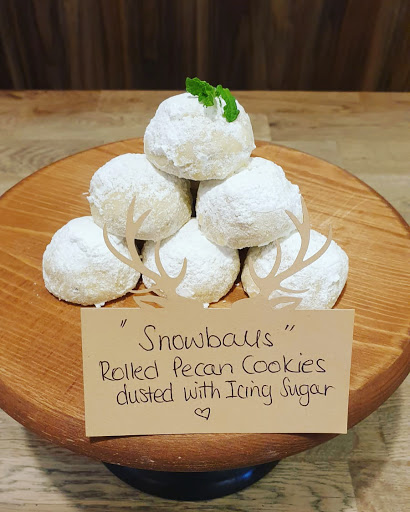 "Snowballs"
Rolled Pecan Cookies
dusted with Icing Sugar
♡